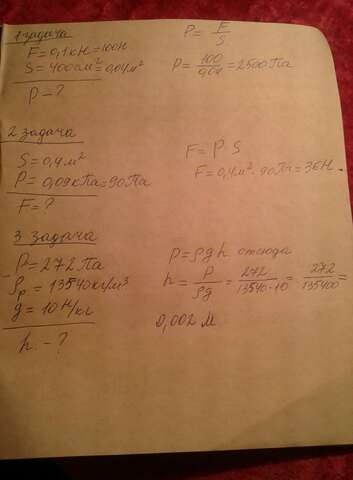 1 задача
F=0,1кН=100Н
S=400см²=0,04м²
P-?
P= F/S
P= 100/0,04=2500Па
2 задача
S=0,4м²
P=0,09кПа=90Па
F=?
F=P S
F=0,4м²·90Па=36Н.
3 задача
P=272Па
ρр=13540кг/м³
g=10Н/кг
h-?
P=ρgh отсюда
h= P/ρg = 272/13540·10 = 272/135400 =
0,002 м